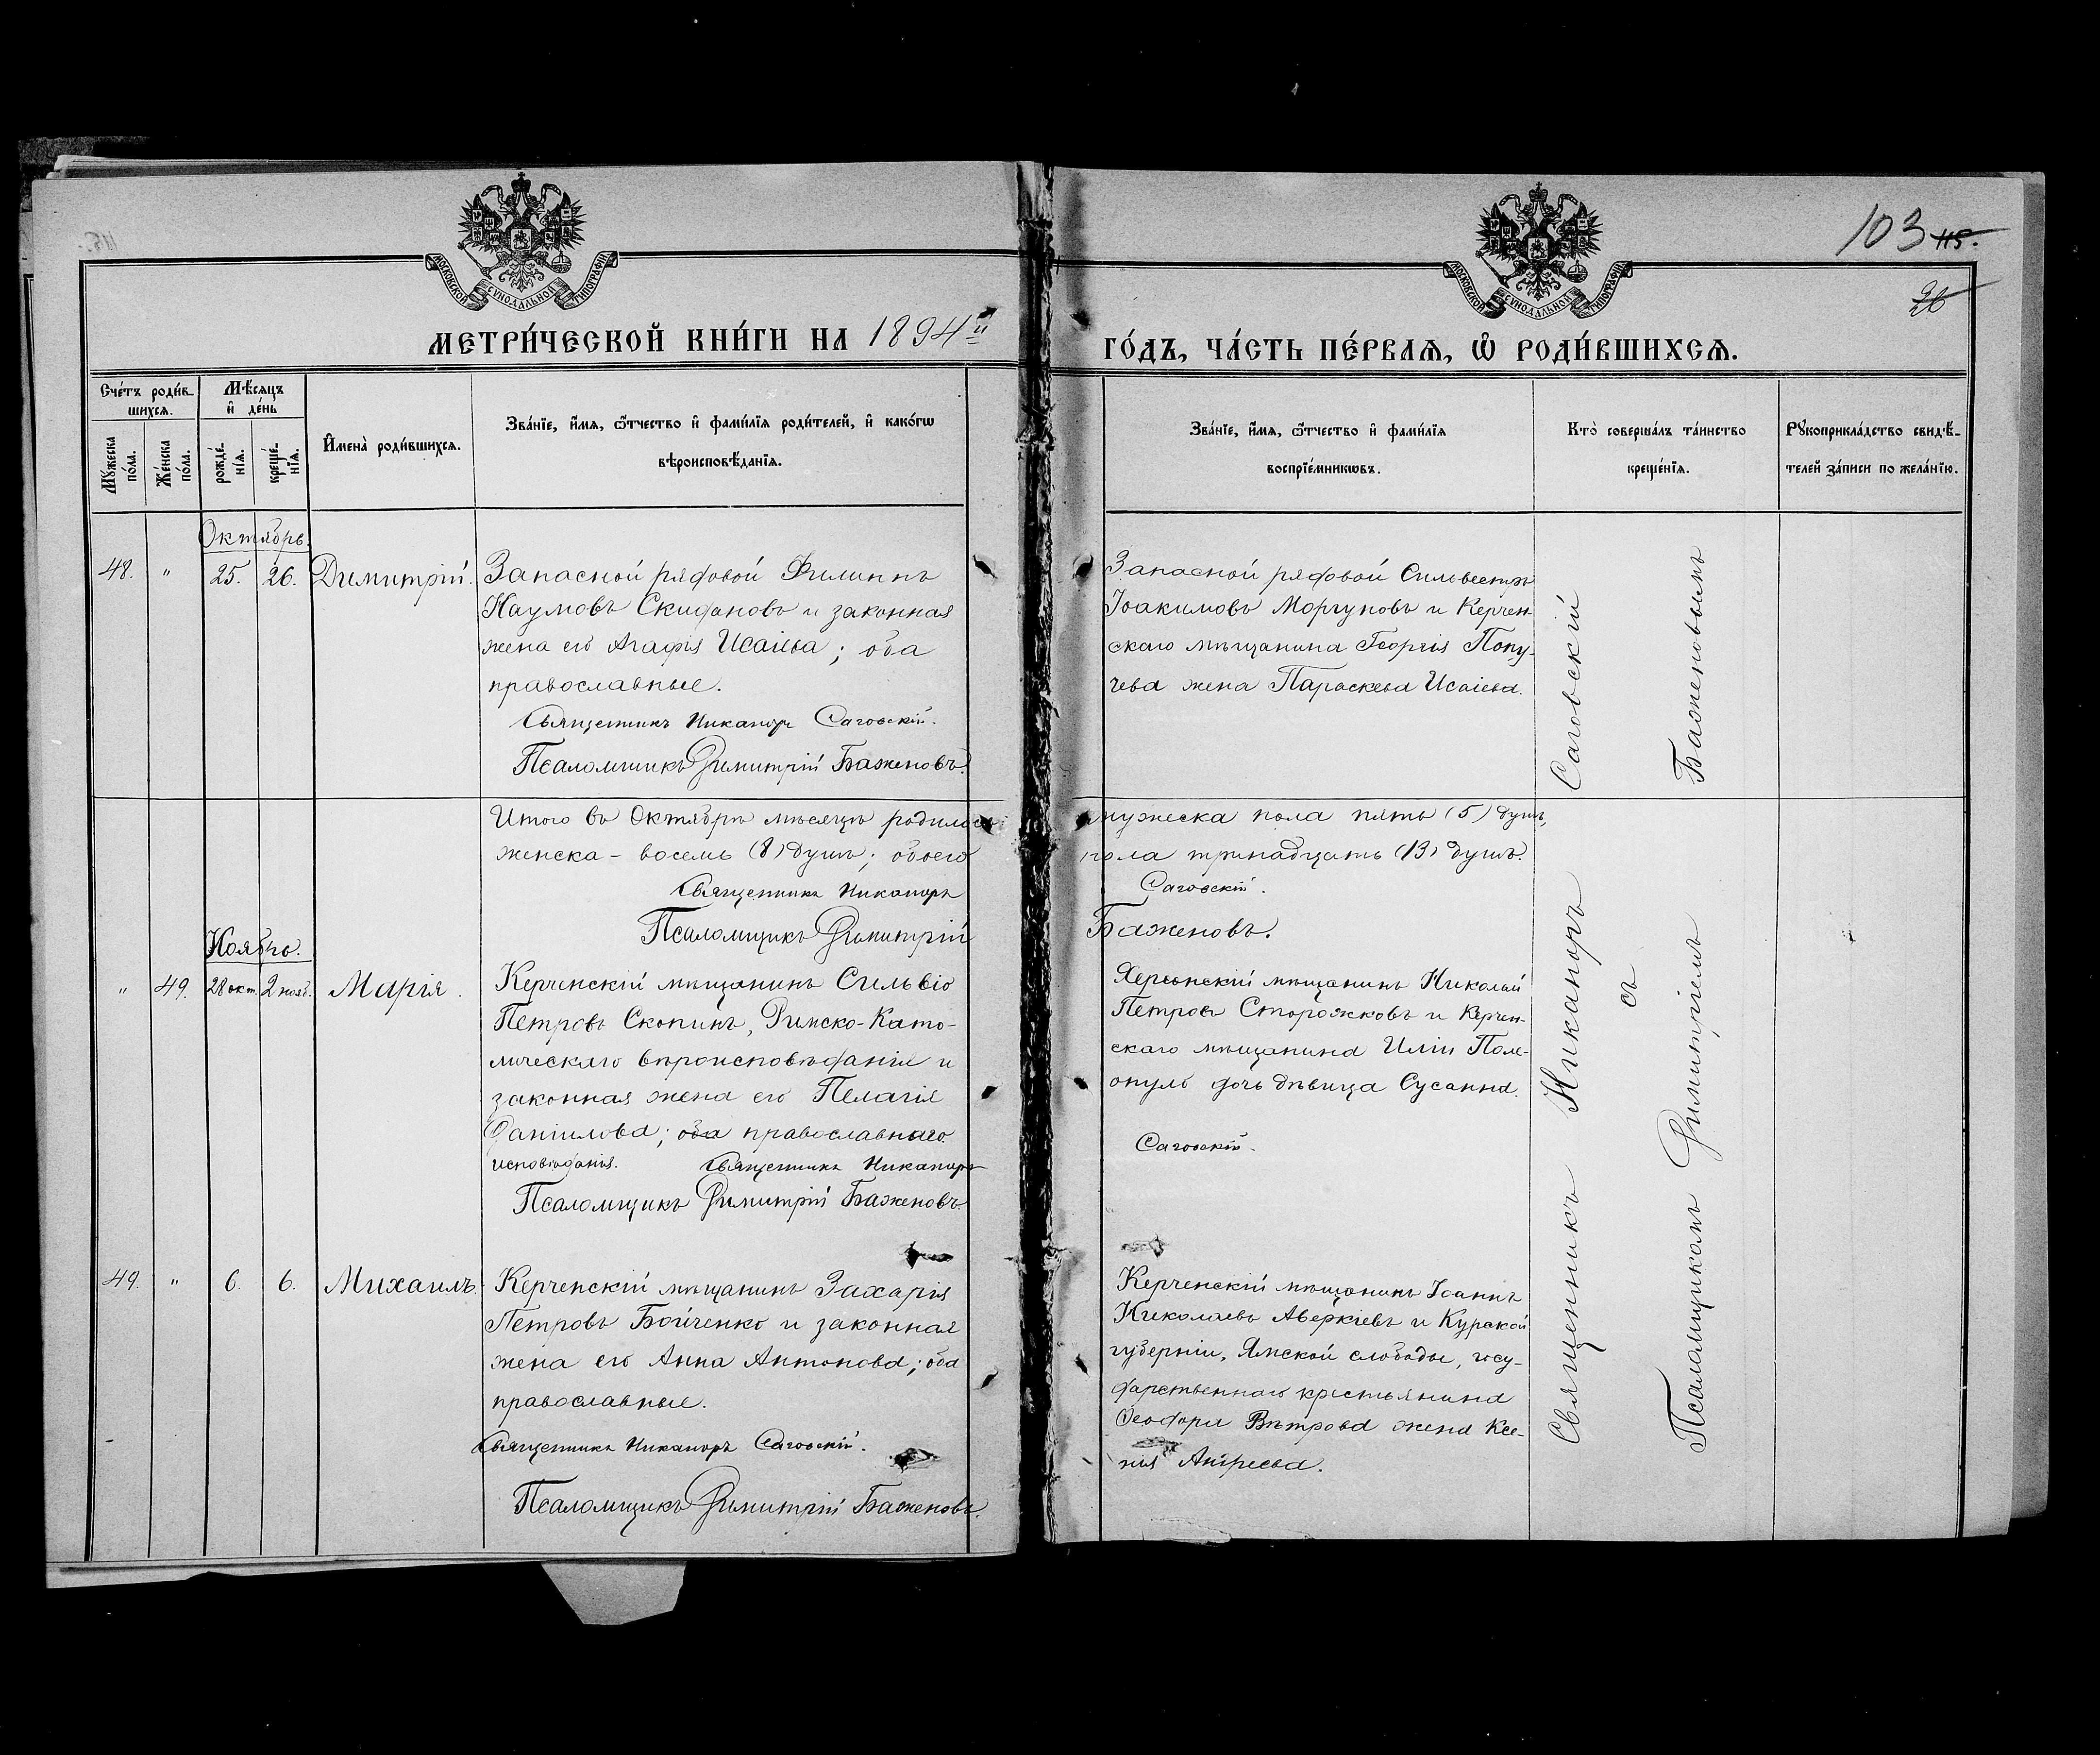 103 115.
26
МОСКОВСКОЙ СѴНОДАЛЬНОЙ ТИПОГРАФІИ
МОСКОВСКОЙ СѴНОДАЛЬНОЙ ТИПОГРАФІИ
МЕТРИ́ЧЕСКОЙ КНИ́ГИ НА 1894й
ГО́ДЪ, ЧА́СТЬ ПЕ́РВАѦ, Ѡ҆ РОДИ́ВШИХСѦ.
Сче́тъ роди́в-
шихсѧ.
Мꙋжеска по́ла.
Же́нска по́ла.
Мѣ́сѧцъ
и҆ де́нь
рожде́-
нїѧ.
креще́-
нїѧ.
И҆мена̀ роди́вшихсѧ.
Зва́нїе, и҆́мѧ, ѻ҆́тчество и҆ фамѝлїѧ роди́телей, и҆ како́гѡ
вѣроисповѣ́данїѧ.
Зва́нїе, и҆́мѧ, ѻ҆́тчество и҆ фамѝлїѧ
воспрїе́мникѡвъ.
Кто̀ соверша́лъ та́инство
креще́нїѧ.
Рꙋкоприкла́дство свидѣ́-
телей за́писи по жела́нїю.
Октябрь.
48. " 25. 26. Димитрій.
Запасной рядовой Филиппъ
Наумовъ Скидановъ и законная
жена его Агафія Исаіева; оба
православные.
Священникъ Никаноръ Саговскій.
Псаломщикъ Димитрій Баженовъ.
Запасной рядовой Сильвестръ
Іоакимовъ Моргуновъ и Керчен-
скаго мѣщанина Георгія Попу-
чева жена Параскева Исаіева.
Итого въ Октябрѣ мѣсяцѣ родилось мужеска пола пять (5) душъ,
женска - восемь (8) душъ; обоего пола тринадцать (13) душъ.
Священникъ Никаноръ Саговскій.
Псаломщикъ Димитрій Баженовъ.
Ноябрь.
" 49. 28 окт. 2 нояб. Марія.
Керченскій мѣщанинъ Сильвіо
Петровъ Скопинъ, Римско-Като-
лическаго вѣроисповѣданія и
законная жена его Пелагія
Даніилова; оба православнаго
исповѣданія. Священникъ Никаноръ Саговскій.
Псаломщикъ Димитрій Баженовъ
Херсонскій мѣщанинъ Николай
Петровъ Сторожковъ и Керчен-
скаго мѣщанина Иліи Поле-
опуло дочь дѣвица Сусанна.
49. " 6. 6. Михаилъ.
Керченскій мѣщанинъ Захарія
Петровъ Бойченко и законная
жена его Анна Антонова; оба
православные.
Священникъ Никаноръ Саговскій.
Псаломщикъ Димитрій Баженовъ.
Керченскій мѣщанинъ Іоаннъ
Николаевъ Аверкіевъ и Курской
губерніи, Ямской слободы, госу-
дарственнаго крестьянина
Ѳеодора Вѣтрова жена Ксе-
нія Андреева.
Священникъ Никаноръ Саговскій
съ
Псаломщикомъ Димитріемъ Баженовымъ